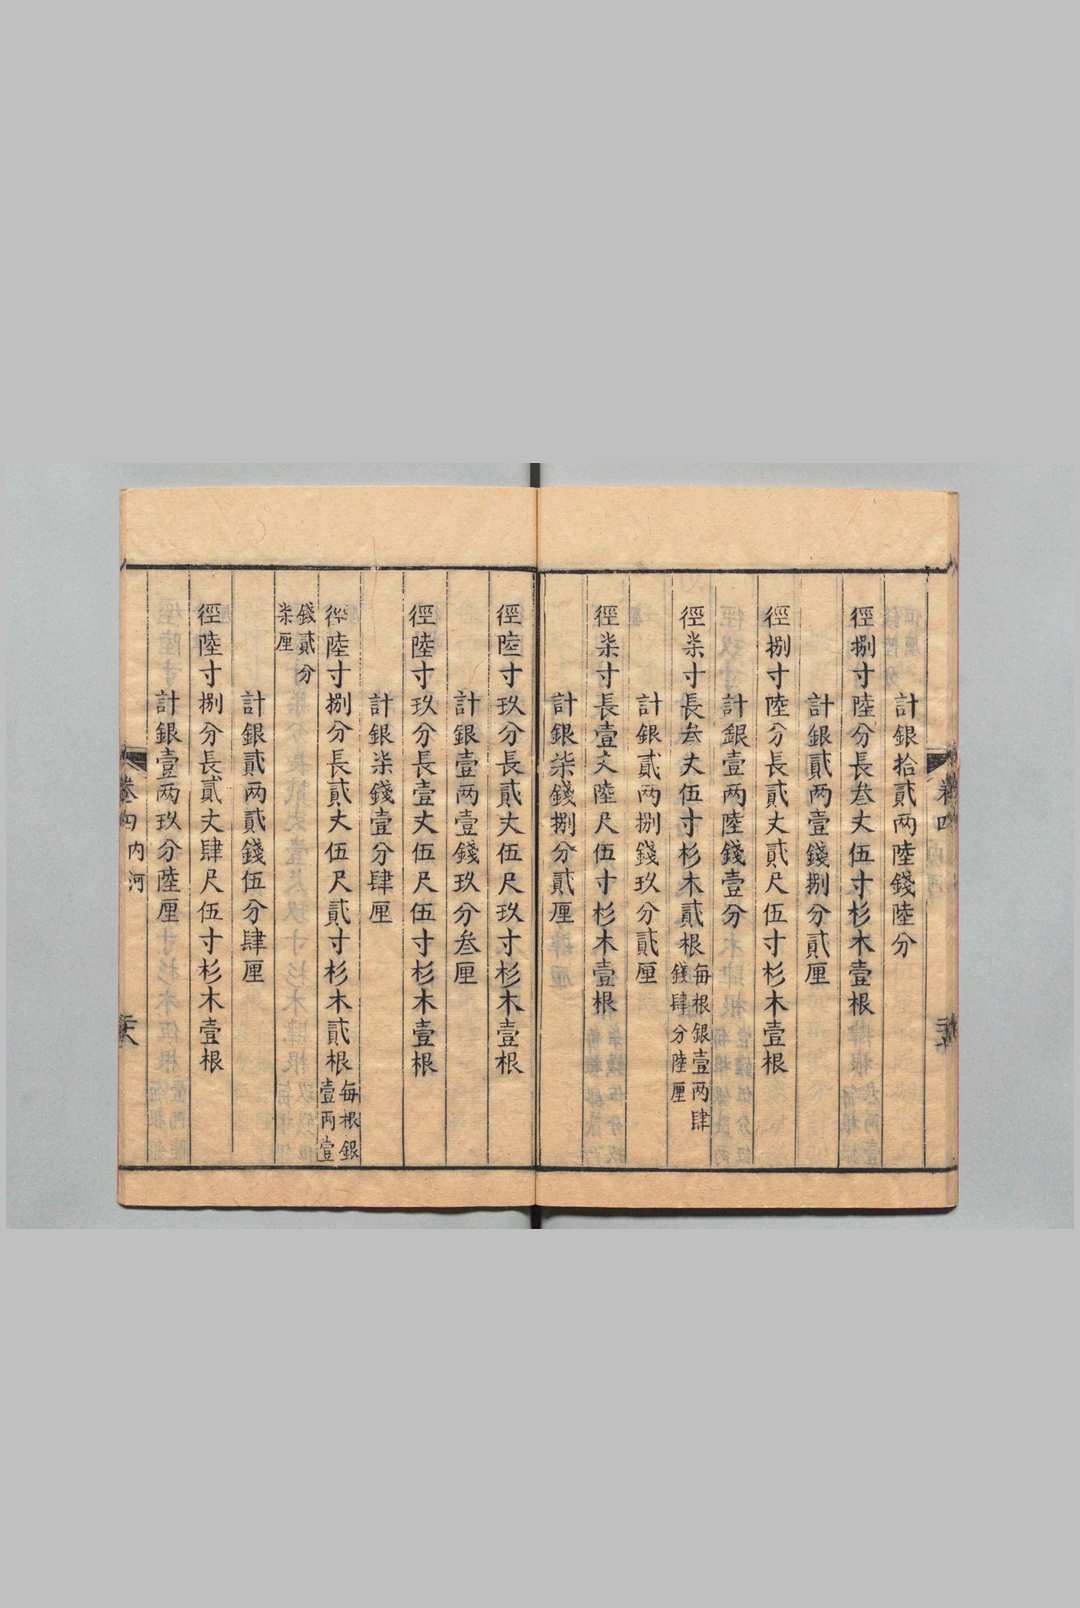 計銀拾貳两陸錢陸分
徑捌寸陸分長叁丈伍寸杉木壹根
計銀貳两壹錢捌分貳厘
徑捌寸陸分長貳丈貳尺伍寸杉木壹根
計銀壹两陸錢壹分
徑柒寸長叁丈伍寸杉木貳根每根銀壹两肆
錢肆分陸厘
計銀貳两捌錢玖分貳厘
徑柒寸長壹丈陸尺伍寸杉木壹根
計銀柒錢捌分貳厘
徑陸寸玖分長貳丈伍尺玖寸杉木壹根
計銀壹两壹錢玖分叁厘
徑陸寸玖分長壹丈伍尺伍寸杉木壹根
計銀柒錢壹分肆厘
徑陸寸捌分長貳丈伍尺貳寸杉木貳根每根銀
壹两壹
錢貳分
柒厘
計銀貳两貳錢伍分肆厘
徑陸寸捌分長貳丈肆尺伍寸杉木壹根
計銀壹两玖分陸厘
卷四 内河